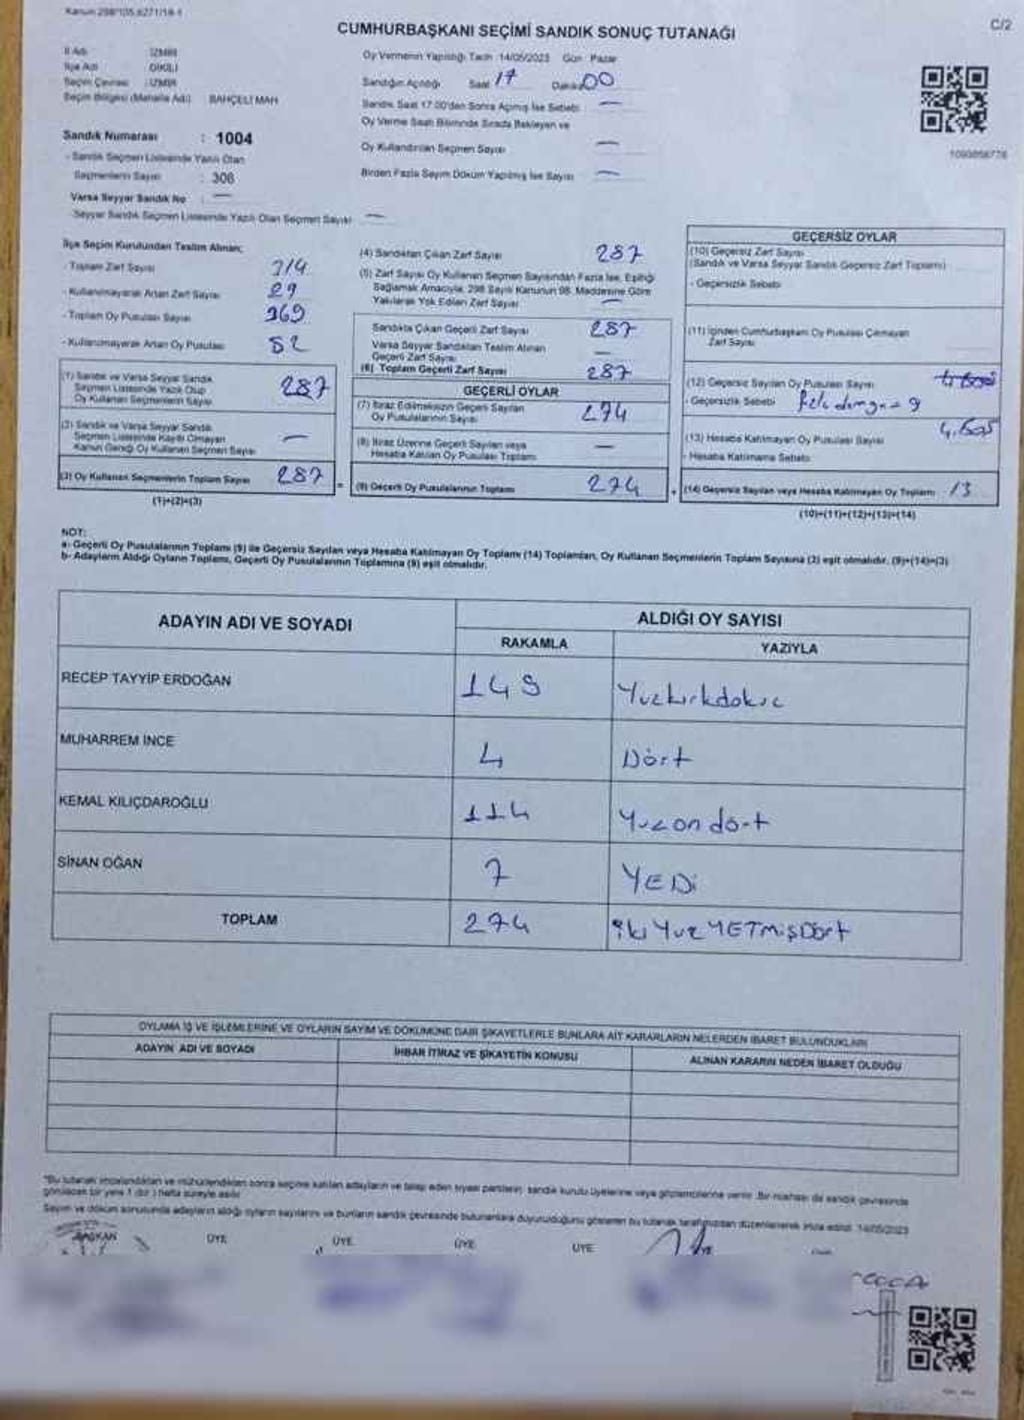 Kanun 298/105,6271/18-1
C/2
CUMHURBAŞKANI SEÇİMİ SANDIK SONUÇ TUTANAĞI
İl Adı : İZMİR
İlçe Adı : DİKİLİ
Seçim Çevresi : İZMİR
Seçim Bölgesi (Mahalle Adı) BAHÇELİ MAH
Sandık Numarası : 1004
- Sandık Seçmen Listesinde Yazılı Olan
Seçmenlerin Sayısı : 306
Varsa Seyyar Sandık No : —
- Seyyar Sandık Seçmen Listesinde Yazılı Olan Seçmen Sayısı —
Oy Vermenin Yapıldığı Tarih :14/05/2023 Gün : Pazar
Sandığın Açıldığı Saat 17 Dakika 00
Sandık Saat 17.00'den Sonra Açılmış İse Sebebi —
Oy Verme Saati Bitiminde Sırada Bekleyen ve
Oy Kullandırılan Seçmen Sayısı —
Birden Fazla Sayım Döküm Yapılmış İse Sayısı —
1093856778
İlçe Seçim Kurulundan Teslim Alınan;
- Toplam Zarf Sayısı 314
- Kullanılmayarak Artan Zarf Sayısı 29
- Toplam Oy Pusulası Sayısı 369
- Kullanılmayarak Artan Oy Pusulası 82
(1) Sandık ve Varsa Seyyar Sandık
Seçmen Listesinde Yazılı Olup
Oy Kullanan Seçmenlerin Sayısı 287
(2) Sandık ve Varsa Seyyar Sandık
Seçmen Listesinde Kayıtlı Olmayan
Kanun Gereği Oy Kullanan Seçmen Sayısı —
(3) Oy Kullanan Seçmenlerin Toplam Sayısı 287
(1)+(2)=(3)
(4) Sandıktan Çıkan Zarf Sayısı 287
(5) Zarf Sayısı Oy Kullanan Seçmen Sayısından Fazla İse, Eşitliği
Sağlamak Amacıyla, 298 Sayılı Kanunun 98. Maddesine Göre
Yakılarak Yok Edilen Zarf Sayısı —
Sandıkta Çıkan Geçerli Zarf Sayısı 287
Varsa Seyyar Sandıktan Teslim Alınan
Geçerli Zarf Sayısı —
(6) Toplam Geçerli Zarf Sayısı 287
GEÇERLİ OYLAR
(7) İtiraz Edilmeksizin Geçerli Sayılan
Oy Pusulalarının Sayısı 274
(8) İtiraz Üzerine Geçerli Sayılan veya
Hesaba Katılan Oy Pusulası Toplamı —
= (9) Geçerli Oy Pusulalarının Toplamı 274
GEÇERSİZ OYLAR
(10) Geçersiz Zarf Sayısı
(Sandık ve Varsa Seyyar Sandık Geçersiz Zarf Toplamı)
- Geçersizlik Sebebi
(11) İçinden Cumhurbaşkanı Oy Pusulası Çıkmayan
Zarf Sayısı
(12) Geçersiz Sayılan Oy Pusulası Sayısı
- Geçersizlik Sebebi 9
(13) Hesaba Katılmayan Oy Pusulası Sayısı
- Hesaba Katılmama Sebebi
+ (14) Geçersiz Sayılan veya Hesaba Katılmayan Oy Toplamı 13
(10)+(11)+(12)+(13)=(14)
NOT:
a- Geçerli Oy Pusulalarının Toplamı (9) ile Geçersiz Sayılan veya Hesaba Katılmayan Oy Toplamı (14) Toplamları, Oy Kullanan Seçmenlerin Toplam Sayısına (3) eşit olmalıdır. (9)+(14)=(3)
b- Adayların Aldığı Oyların Toplamı, Geçerli Oy Pusulalarının Toplamına (9) eşit olmalıdır.
ADAYIN ADI VE SOYADI
ALDIĞI OY SAYISI
RAKAMLA YAZIYLA
RECEP TAYYİP ERDOĞAN 149 Yuzkırkdokuz
MUHARREM İNCE 4 Dört
KEMAL KILIÇDAROĞLU 114 Yuzondört
SİNAN OĞAN 7 YEDİ
TOPLAM 274 iki Yuz YETMİŞDört
OYLAMA İŞ VE İŞLEMLERİNE VE OYLARIN SAYIM VE DÖKÜMÜNE DAİR ŞİKAYETLERLE BUNLARA AİT KARARLARIN NELERDEN İBARET BULUNDUKLARI
ADAYIN ADI VE SOYADI
İHBAR İTİRAZ VE ŞİKAYETİN KONUSU
ALINAN KARARIN NEDEN İBARET OLDUĞU
*Bu tutanak imzalandıktan ve mühürlendikten sonra seçime katılan adayların ve talep eden siyasi partilerin sandık kurulu üyelerine veya gözlemcilerine verilir. Bir nüshası da sandık çevresinde
görülecek bir yere 1 (bir) hafta süreyle asılır
Sayım ve döküm sonucunda adayların aldığı oyların sayılarını ve bunların sandık çevresinde bulunanlara duyurulduğunu gösteren bu tutanak tarafımızdan düzenlenerek imza edildi. 14/05/2023
BAŞKAN ÜYE ÜYE ÜYE ÜYE